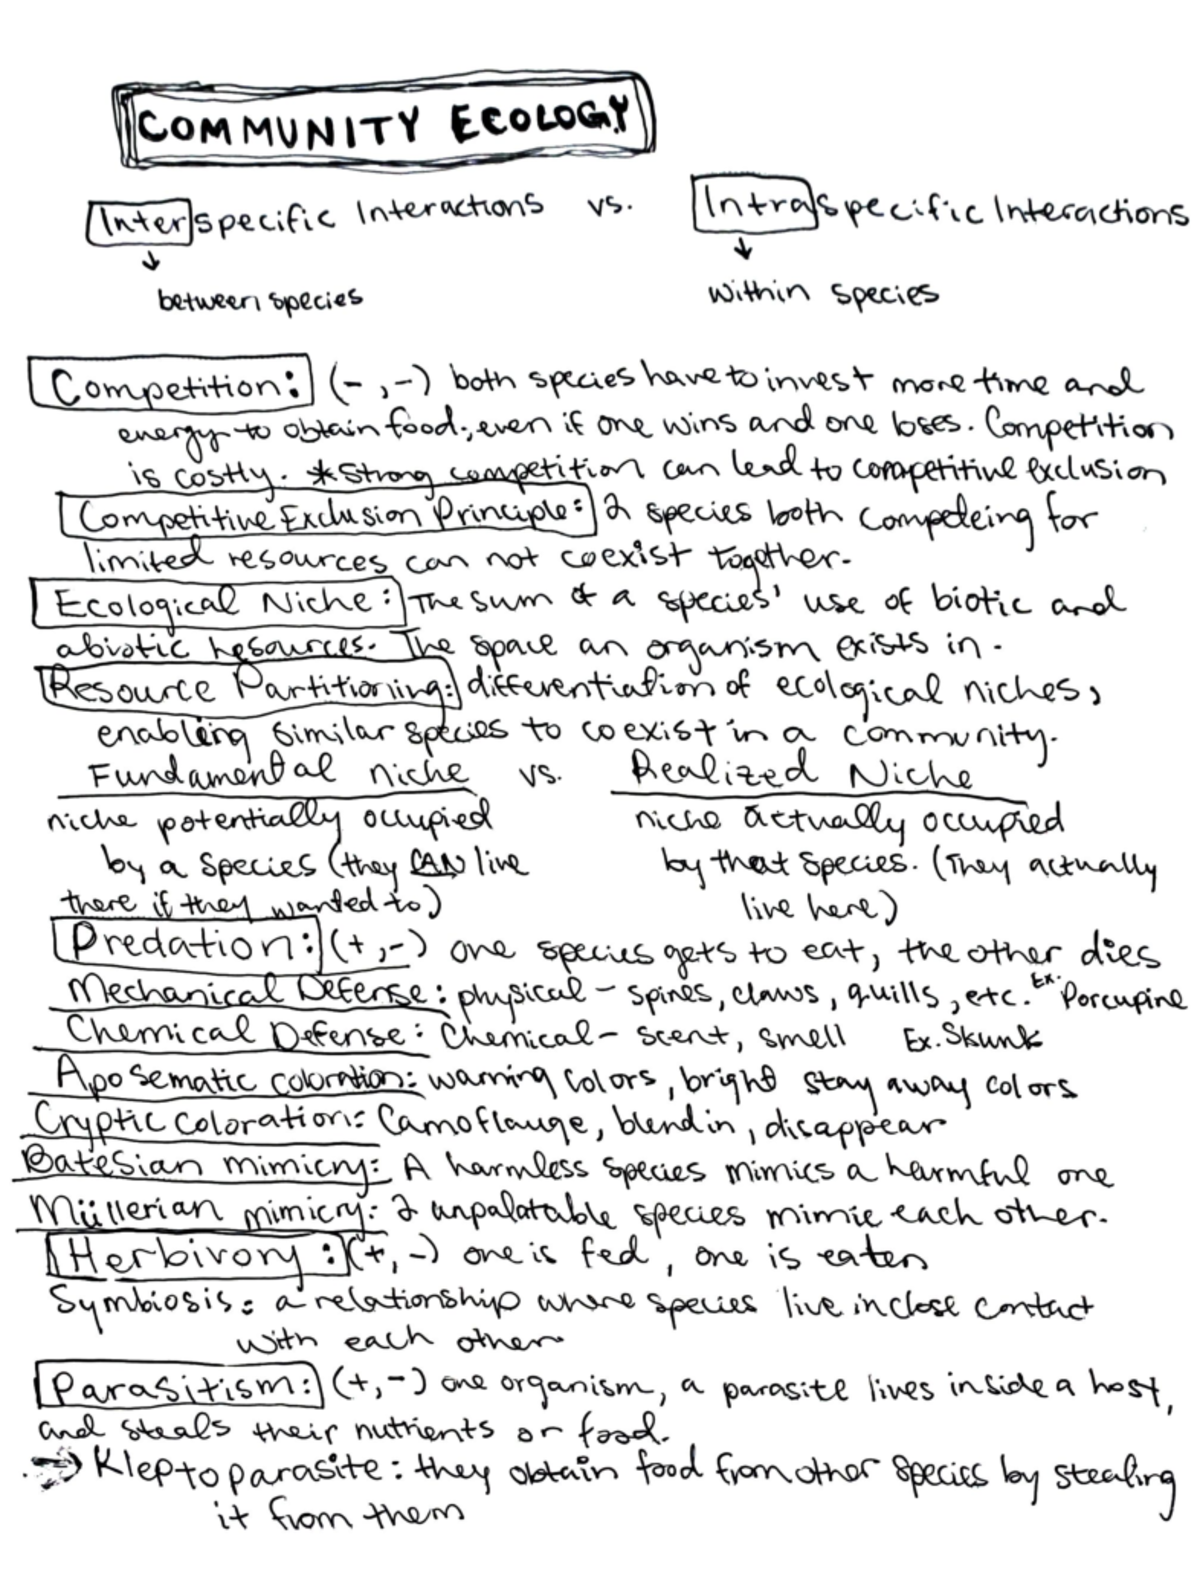 COMMUNITY ECOLOGY
Interspecific Interactions vs. Intraspecific Interactions
between species within species
Competition: (-,-) both species have to invest more time and
energy to obtain food, even if one wins and one loses. Competition
is costly. *Strong competition can lead to competitive exclusion
Competitive Exclusion Principle: 2 species both competeing for
limited resources can not coexist together.
Ecological Niche: The sum of a species' use of biotic and
abiotic resources. The space an organism exists in.
Resource Partitioning: differentiation of ecological niches,
enabling similar species to coexist in a community.
Fundamental niche vs. Realized Niche
niche potentially occupied niche actually occupied
by a species (they CAN live by that species. (They actually
there if they wanted to) live here)
Predation: (+,-) one species gets to eat, the other dies
Mechanical Defense: physical - spines, claws, quills, etc. Ex. Porcupine
Chemical Defense: Chemical - scent, smell Ex. Skunk
Aposematic coloration: warning colors, bright stay away colors
Cryptic coloration: Camoflauge, blend in, disappear
Batesian mimicry: A harmless species mimics a harmful one
Müllerian mimicry: 2 unpalatable species mimic each other.
Herbivory: (+,-) one is fed, one is eaten
Symbiosis: a relationship where species live in close contact
with each other
Parasitism: (+,-) one organism, a parasite lives inside a host,
and steals their nutrients or food.
→ Kleptoparasite: they obtain food from other species by stealing
it from them